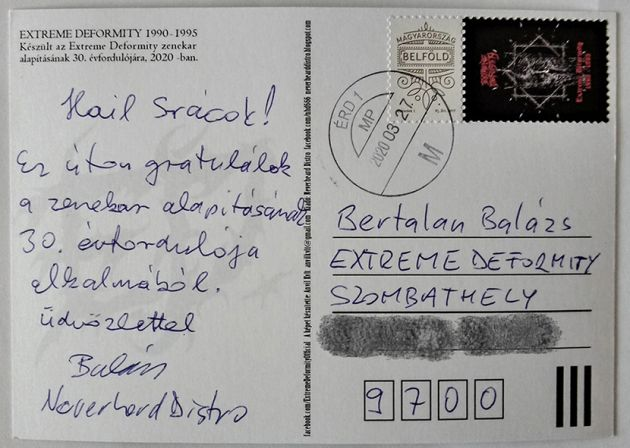 EXTREME DEFORMITY 1990-1995
Készült az Extreme Deformity zenekar
alapításának 30. évfordulójára, 2020 -ban.
Hail Srácok!
Ez úton gratulálok
a zenekar alapításának
30. évfordulója
alkalmából.
üdvözlettel
Balázs
Neverheard Distro
MAGYARORSZÁG
BELFÖLD
ÉRD 1
MP
2020 03. 27.
M
Bertalan Balázs
EXTREME DEFORMITY
SZOMBATHELY
9700